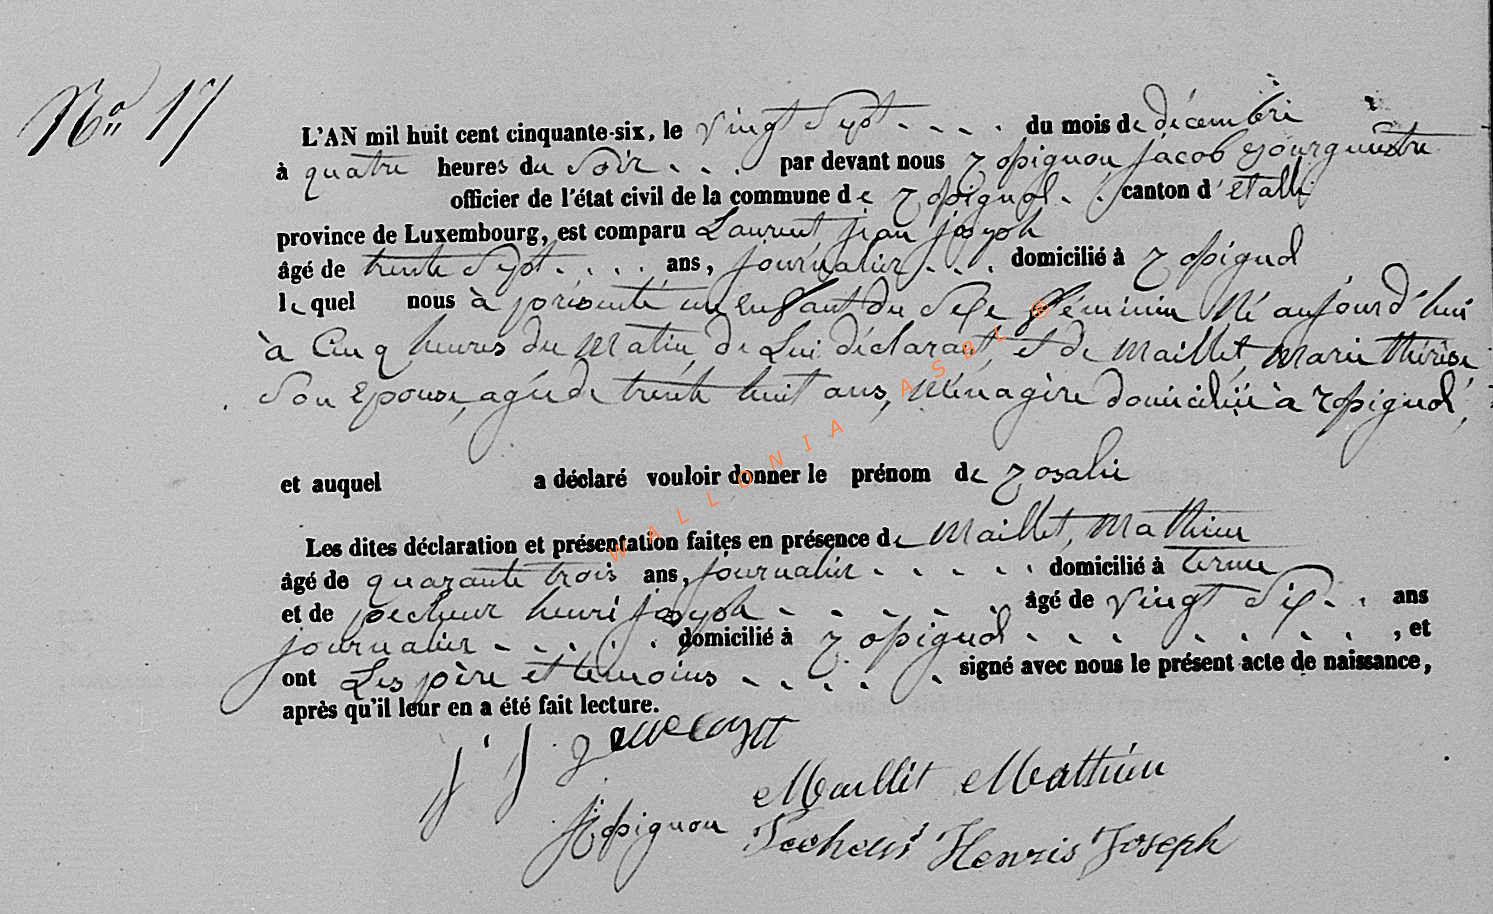 No 17
L'AN mil huit cent cinquante-six, le vingt Sept du mois de décembre
à quatre heures du Soir par devant nous rossignon jacob Bourguestre
officier de l'état civil de la commune de rossignol canton d'étalle
province de Luxembourg, est comparu Laurent jean joseph
âgé de trente Sept ans, journalier domicilié à rossignol
le quel nous à présenté un enfant du Sexe féminin Né aujourd'hui
à Cinq heures du Matin, de Lui déclarant, et de Maillet, Marie thérèse
Son Epouse, agée de trente huit ans, Ménagère domiciliée à rossignol,
et auquel a déclaré vouloir donner le prénom de rosalie
Les dites déclaration et présentation faites en présence de Maillet, Mathieu
âgé de quarante trois ans, journalier domicilié à termes
et de pecheur henri joseph âgé de vingt Six ans
journalier domicilié à rossignol , et
ont Les père et temoins signé avec nous le présent acte de naissance,
après qu'il leur en a été fait lecture.
j j
Maillet Mathieu
rossignon Pecheur Henris Joseph
WALLONIA ASBL ©